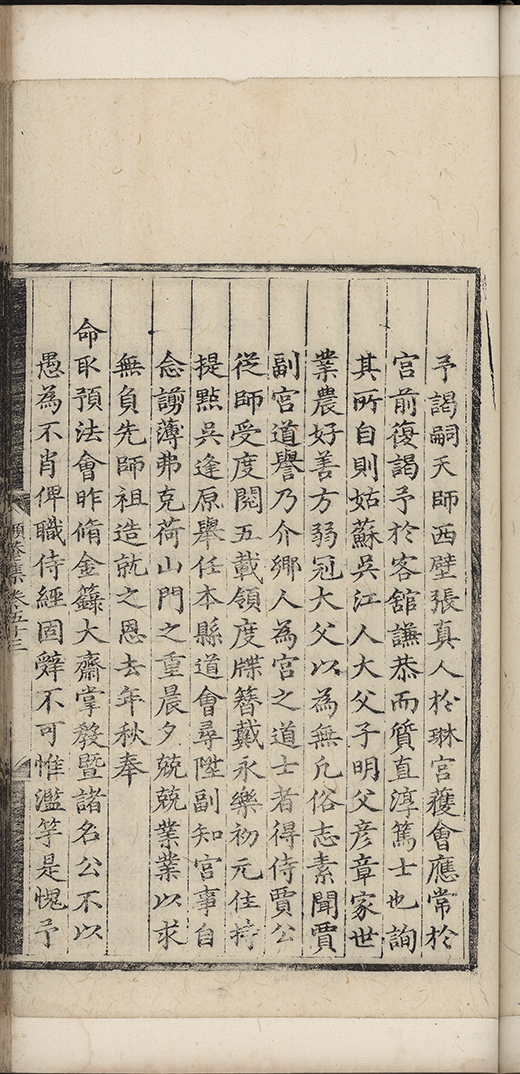 予謁嗣天師西壁張真人於琳宮獲會應常於
宮前復謁予於客舘謙恭而質直淳篤士也詢
其所自則姑蘇吳江人大父子明父彦章家世
業農好善方弱冠大父以為無凡俗志素聞賈
副宮道譽乃介鄉人為宮之道士者得侍賈公
從師受度閱五載領度牒簪戴永樂初元住持
提㸃吳逢原舉任本縣道會尋陞副知宮事自
念謭薄弗克荷山門之重晨夕兢兢業業以求
無負先師祖造就之恩去年秋奉
命取預法會昨脩金籙大齋掌發曁諸名公不以
愚為不肖俾職侍經固辭不可惟濫竽是愧予
頤菴集卷五十三